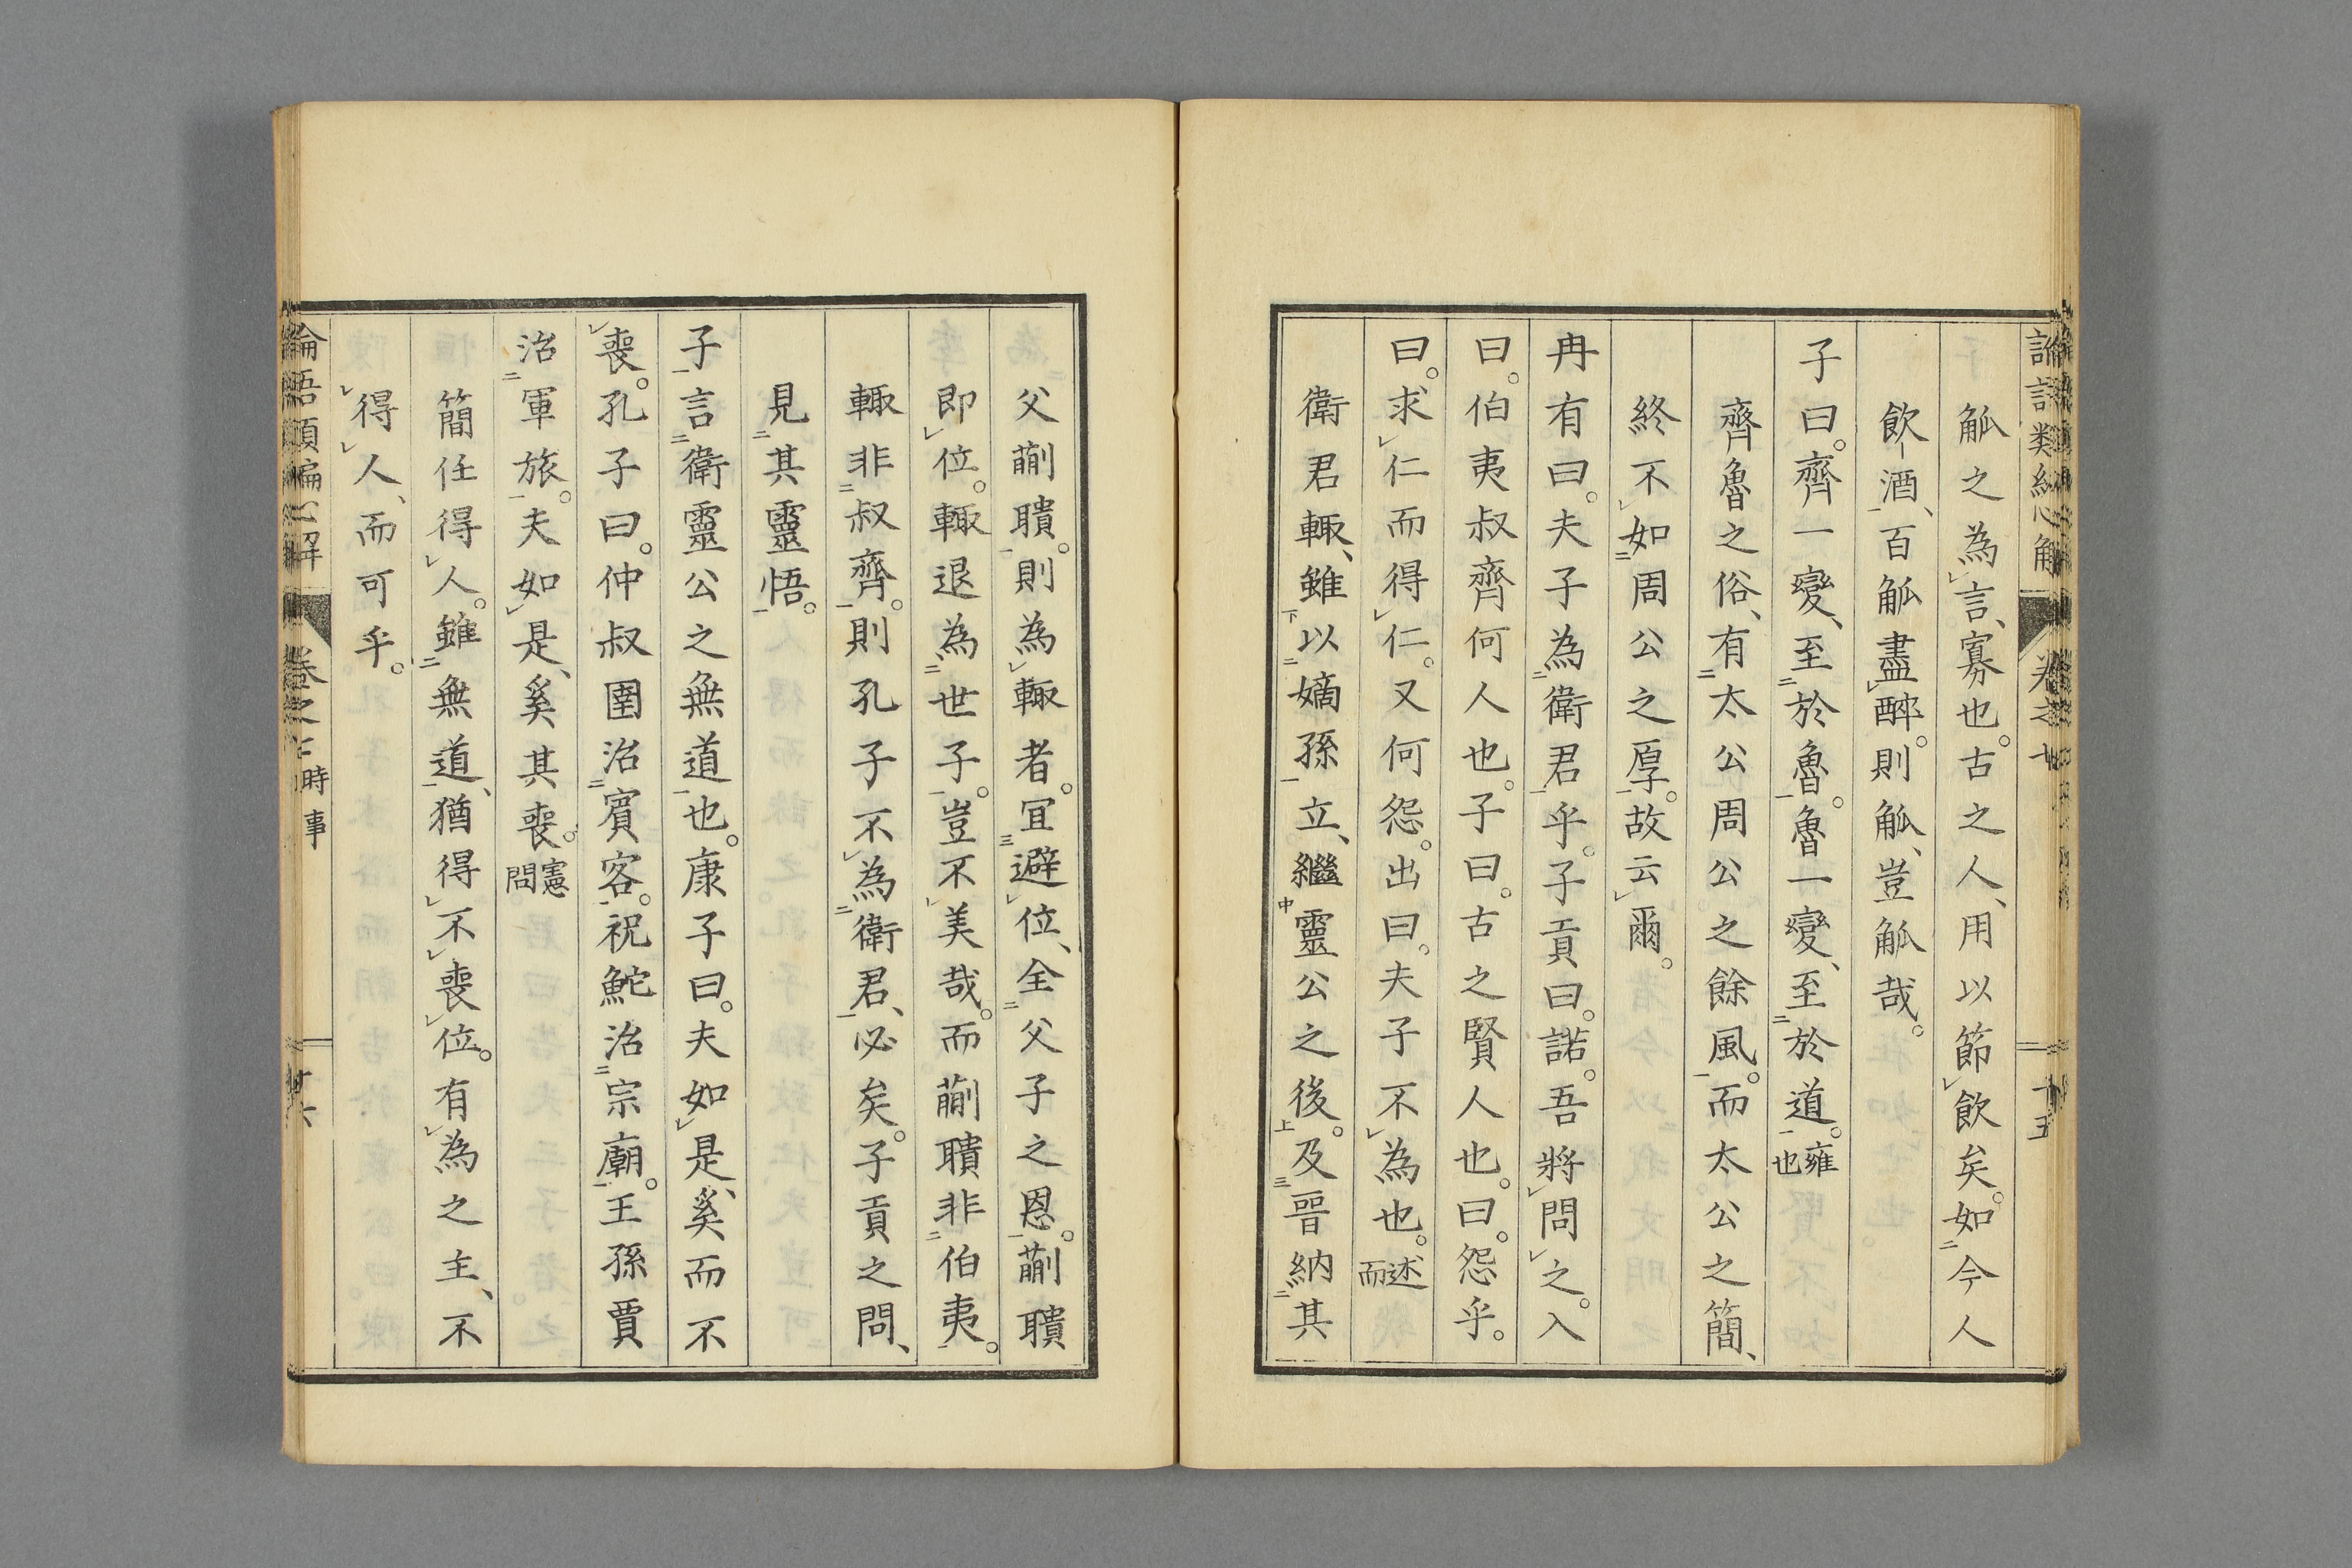 觚之為言、寡也。古之人、用以節飲矣。如今人
飲酒、百觚盡醉。則觚、豈觚哉。
子曰。齊一變、至於魯。魯一變、至於道。雍也
齊魯之俗、有太公周公之餘風。而太公之簡、
終不如周公之厚。故云爾。
冉有曰。夫子為衛君乎。子貢曰。諾。吾將問之。入
曰。伯夷叔齊何人也。子曰。古之賢人也。曰。怨乎。
曰。求仁而得仁。又何怨。出曰。夫子不為也。述而
衛君輙、雖以嫡孫立、繼靈公之後。及晉納其
父蒯聵。則為輙者。宜避位、全父子之恩。蒯聵
即位。輙退為世子。豈不美哉。而蒯聵非伯夷。
輙非叔齊。則孔子不為衛君、必矣。子貢之問、
見其靈悟。
子言衛靈公之無道也。康子曰。夫如是、奚而不
喪。孔子曰。仲叔圉治賓客。祝鮀治宗廟。王孫賈
治軍旅。夫如是、奚其喪。憲問
簡任得人。雖無道、猶得不喪位。有為之主、不
得人、而可乎。
論語類編心解 卷之二 時事